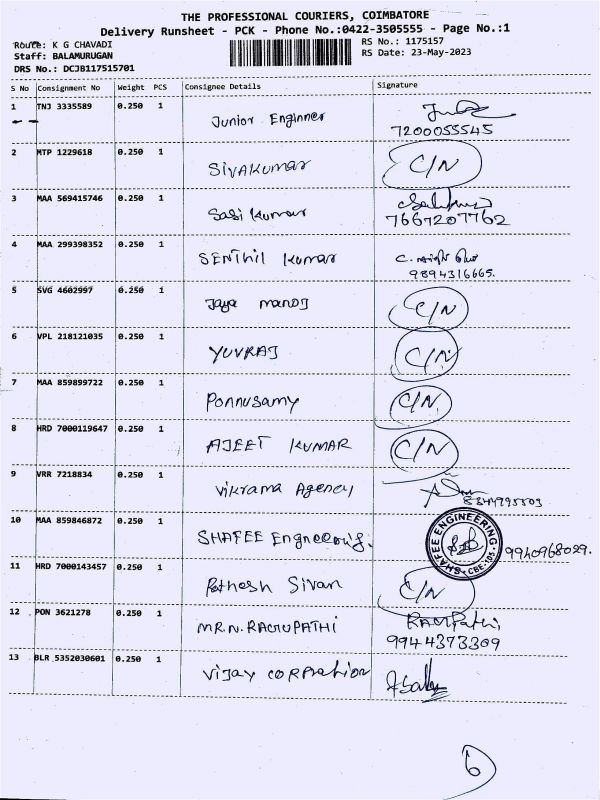 THE PROFESSIONAL COURIERS, COIMBATORE
Delivery Runsheet - PCK - Phone No.:0422-3505555 - Page No.:1
Route: K G CHAVADI RS No.: 1175157
Staff: BALAMURUGAN RS Date: 23-May-2023
DRS No.: DCJB117515701
S No Consignment No Weight PCS Consignee Details Signature
1 TNJ 3335589 0.250 1 Junior Enginner
7200055545
2 MTP 1229618 0.250 1 SIVAKUMAR C/N
3 MAA 569415746 0.250 1 Sasi Kumar
7667207762
4 MAA 299398352 0.250 1 SENthil Kumar
9894316665.
5 SVG 4602997 0.250 1 Jaya manoj C/N
6 VPL 218121035 0.250 1 YUVRAJ C/N
7 MAA 859899722 0.250 1 Ponnusamy C/N
8 HRD 7000119647 0.250 1 AJEET KUMAR C/N
9 VRR 7218834 0.250 1 Vikrama Agency
10 MAA 859846872 0.250 1 SHAFEE Engneering. SHAFEE ENGINEERING CBE-105 9940968029.
11 HRD 7000143457 0.250 1 Sivan C/N
12 PON 3621278 0.250 1 MR.N. RAGUPATHI
9944373309
13 BLR 5352030601 0.250 1 Vijay CORPration
6